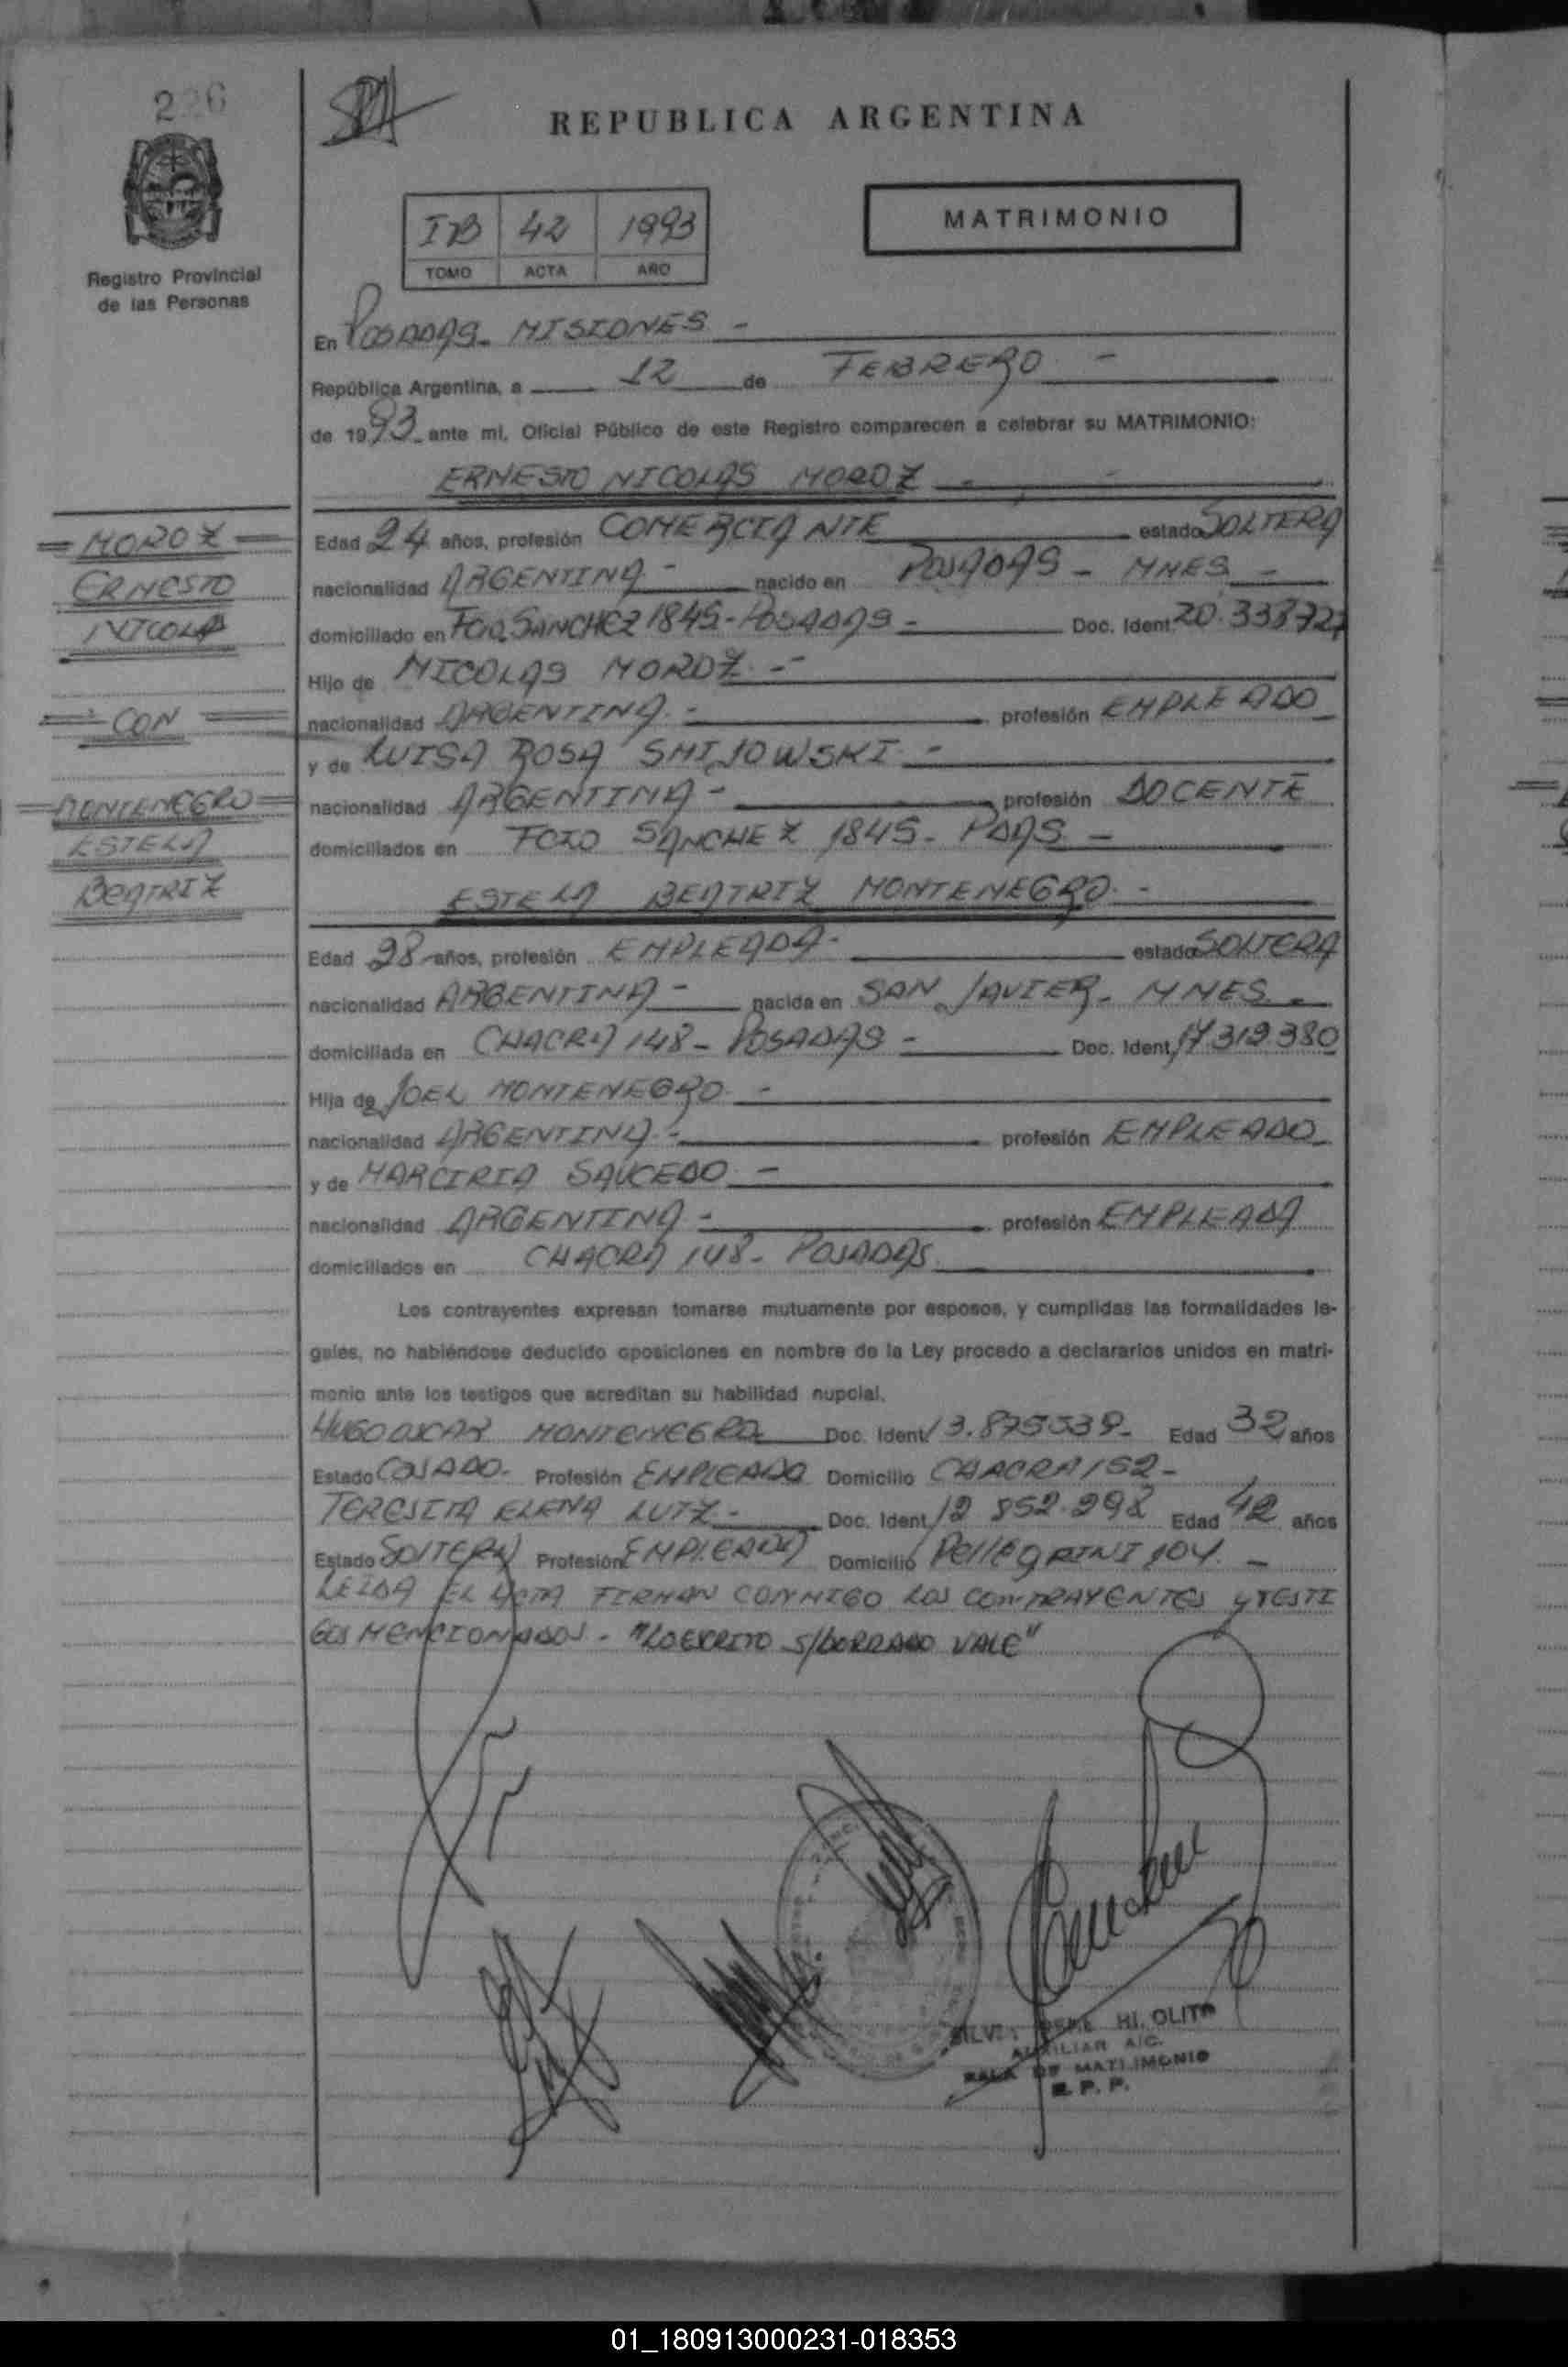 226
REPUBLICA ARGENTINA
Registro Provincial
de las Personas
IB 42 1993
TOMO ACTA AÑO
MATRIMONIO
En POSADAS - MISIONES -
República Argentina, a 12 de FEBRERO -
de 1993 ante mí, Oficial Público de este Registro comparecen a celebrar su MATRIMONIO:
ERNESTO NICOLAS MOROZ -
MOROZ
ERNESTO
NICOLAS
CON
MONTENEGRO
ESTELA
BEATRIZ
Edad 24 años, profesión COMERCIANTE estado SOLTERO
nacionalidad ARGENTINA - nacido en POSADAS - MNES -
domiciliado en FCIO. SANCHEZ 1845 - POSADAS - Doc. Ident. 20.338.727
Hijo de NICOLAS MOROZ -
nacionalidad ARGENTINA - profesión EMPLEADO
y de LUISA ROSA SMIJOWSKI -
nacionalidad ARGENTINA - profesión DOCENTE
domiciliados en FCIO SANCHEZ 1845 - PDAS -
ESTELA BEATRIZ MONTENEGRO -
Edad 28 años, profesión EMPLEADA - estado SOLTERA
nacionalidad ARGENTINA - nacida en SAN JAVIER - MNES -
domiciliada en CHACRA 148 - POSADAS - Doc. Ident. 17.319.380
Hija de JOEL MONTENEGRO -
nacionalidad ARGENTINA - profesión EMPLEADO
y de MARCIRIA SAUCEDO -
nacionalidad ARGENTINA - profesión EMPLEADA
domiciliados en CHACRA 148 - POSADAS
Los contrayentes expresan tomarse mutuamente por esposos, y cumplidas las formalidades le-
gales, no habiéndose deducido oposiciones en nombre de la Ley procedo a declararlos unidos en matri-
monio ante los testigos que acreditan su habilidad nupcial.
HUGO OSCAR MONTENEGRO Doc. Ident. 13.875539 - Edad 32 años
Estado CASADO - Profesión EMPLEADO Domicilio CHACRA 152 -
TERESITA ELENA LUTZ - Doc. Ident. 12 852.298 Edad 42 años
Estado SOLTERA Profesión EMPLEADA Domicilio PELLEGRINI 104 -
LEIDA EL ACTA FIRMAN CONMIGO LOS CONTRAYENTES y TESTI
GOS MENCIONADOS - "LO EXCRITO S/BORRADO VALE"
AUXILIAR A/C.
SALA DE MATRIMONIO
R. P. P.
01_180913000231-018353